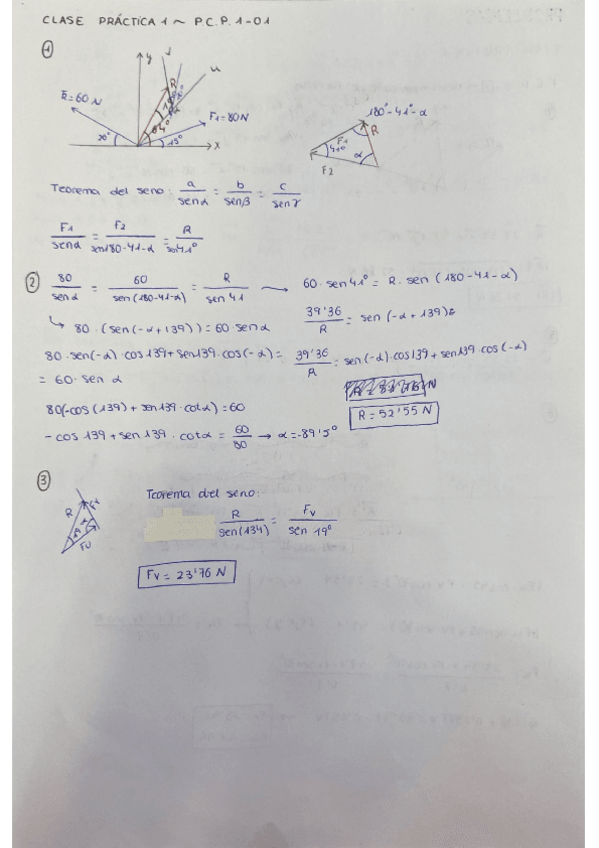 CLASE PRÁCTICA 1 ~ P.C.P. 1-01
①
y
R
u
F2=60N
F1=80N
20°
64°
15°
x
180°-41°-α
R
F1
41°
α
F2
Teorema del seno: a/senα = b/senβ = c/senγ
F1/senα = F2/sen180-41-α = R/sen41°
② 80/senα = 60/sen(180-41-α) = R/sen 41 → 60·sen41° = R·sen(180-41-α)
↳ 80·(sen(-α+139)) = 60·senα
39'36/R = sen(-α+139)
80·sen(-α)·cos139+sen139·cos(-α)= 39'36/R = sen(-α)·cos139+sen139·cos(-α)
= 60·sen α
80(-cos(139)+sen139·cotα)=60
R=52'55 N
-cos 139+sen139·cotα = 60/80 → α=-89'5°
③
Teorema del seno:
R
Fv
Fu
R/sen(134) = Fv/sen 19°
Fv = 23'76 N